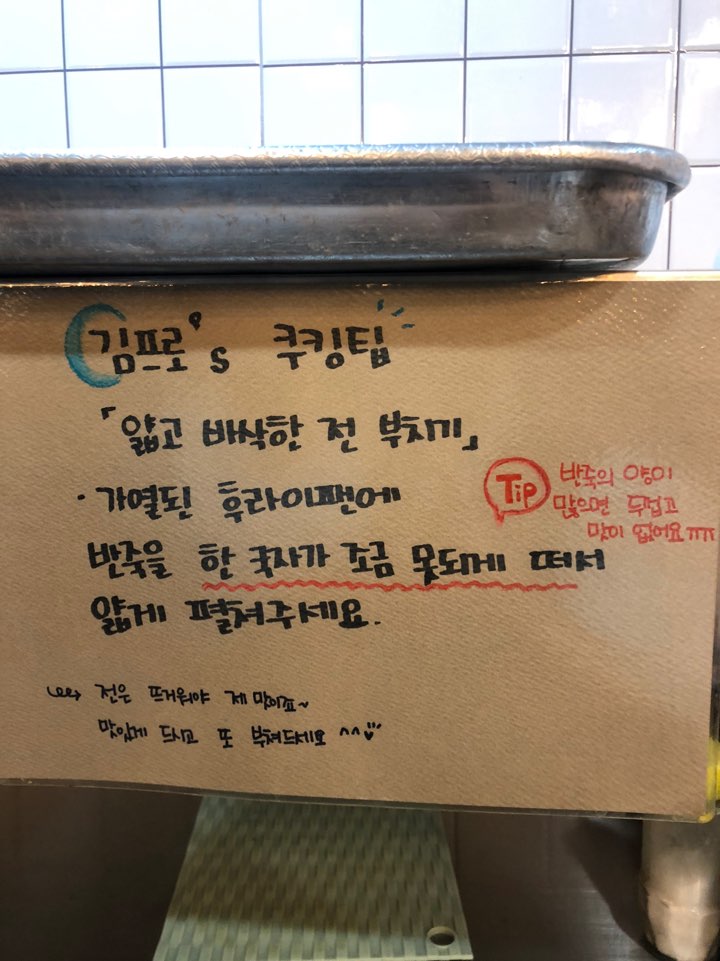 김프로's 쿠킹팁
「얇고 바삭한 전 부치기」
· 가열된 후라이팬에
반죽을 한 국자가 조금 못되게 떠서
얇게 펼쳐주세요.
Tip 반죽의 양이
많으면 두껍고
맛이 없어요ㅠㅠ
전은 뜨거워야 제 맛이죠~
맛있게 드시고 또 부쳐드세요 ^^